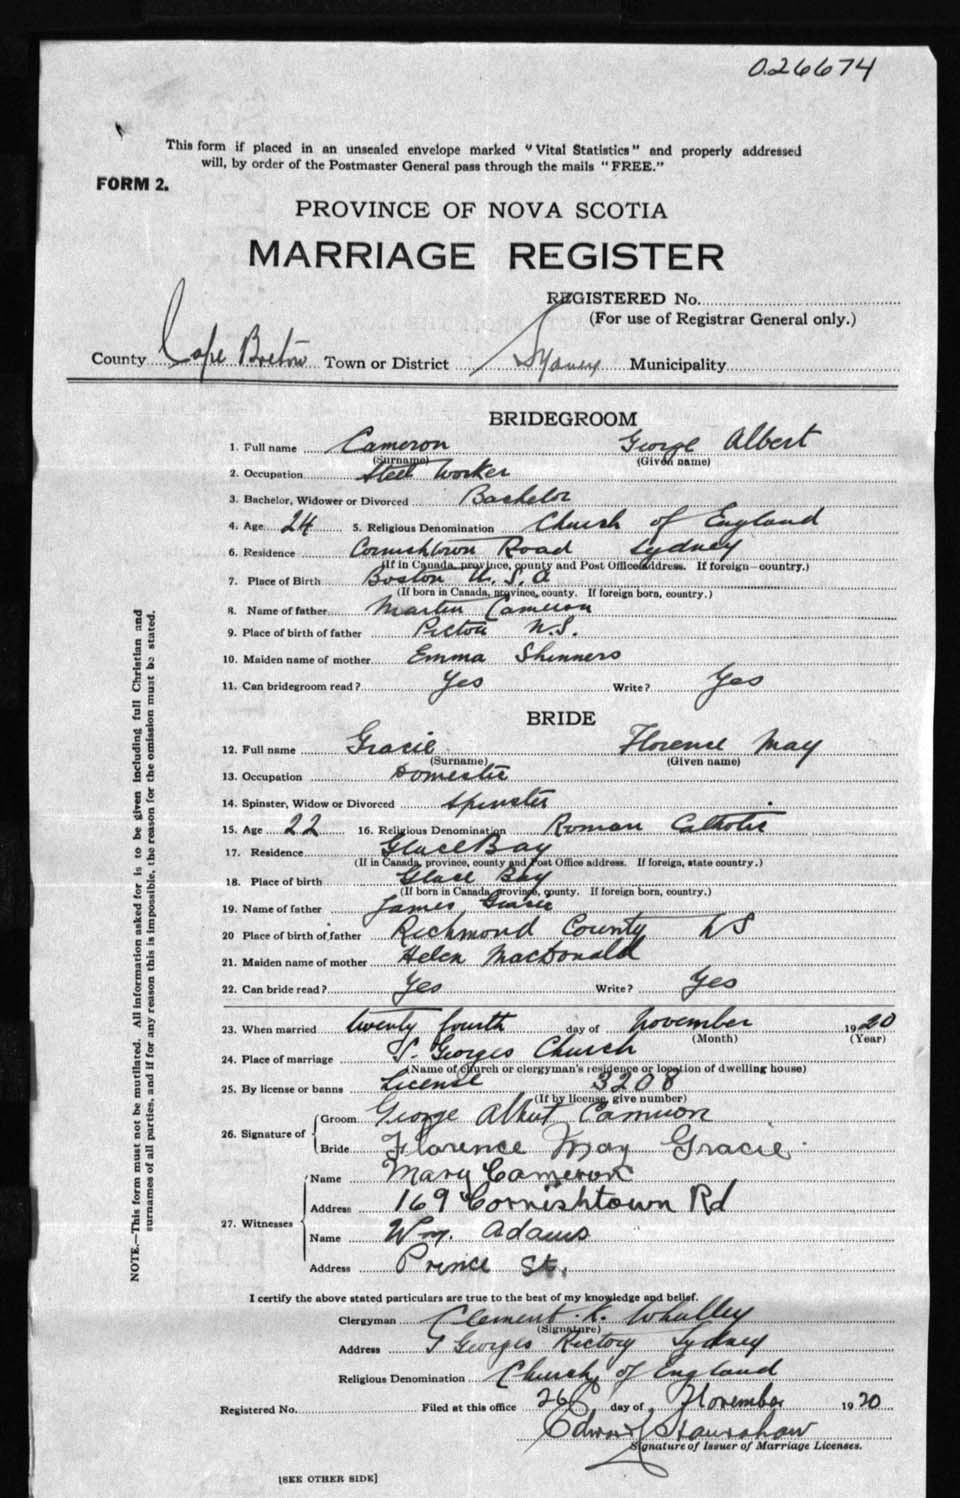 026674
This form if placed in an unsealed envelope marked "Vital Statistics" and properly addressed
will, by order of the Postmaster General pass through the mails "FREE."
FORM 2.
PROVINCE OF NOVA SCOTIA
MARRIAGE REGISTER
REGISTERED No.
(For use of Registrar General only.)
County Cape Breton Town or District Sydney Municipality
BRIDEGROOM
1. Full name Cameron George Albert
(Surname) (Given name)
2. Occupation Steel Worker
3. Bachelor, Widower or Divorced Bachelor
4. Age 24 5. Religious Denomination Church of England
6. Residence Cornishtown Road Sydney
(If in Canada, province, county and Post Office address. If foreign—country.)
7. Place of Birth Boston U.S.A
(If born in Canada, province, county. If foreign born, country.)
8. Name of father Martin Cameron
9. Place of birth of father Pictou N.S.
10. Maiden name of mother Emma Skinners
11. Can bridegroom read? Yes Write? Yes
BRIDE
12. Full name Gracie Florence May
(Surname) (Given name)
13. Occupation Domestic
14. Spinster, Widow or Divorced Spinster
15. Age 22 16. Religious Denomination Roman Catholic
17. Residence Glace Bay
(If in Canada, province, county and Post Office address. If foreign, state country.)
18. Place of birth Glace Bay
(If born in Canada, province, county. If foreign born, country.)
19. Name of father James Gracie
20 Place of birth of father Richmond County NS
21. Maiden name of mother Helen MacDonald
22. Can bride read? Yes Write? Yes
23. When married twenty fourth day of November 1920
(Month) (Year)
24. Place of marriage S. Georges Church
(Name of church or clergyman's residence or location of dwelling house)
25. By license or banns License 3208
(If by license, give number)
26. Signature of Groom George Albert Cameron
Bride Florence May Gracie
27. Witnesses Name Mary Cameron
Address 169 Cornishtown Rd
Name Wm. Adams
Address Prince St.
I certify the above stated particulars are true to the best of my knowledge and belief.
Clergyman Clement K. Whalley
(Signature)
Address S Georges Rectory Sydney
Religious Denomination Church of England
Registered No. Filed at this office 26 day of November 1920
Signature of Issuer of Marriage Licenses.
[SEE OTHER SIDE]
NOTE.—This form must not be mutilated. All information asked for is to be given including full Christian and
surnames of all parties, and if for any reason this is impossible, the reason for the omission must be stated.